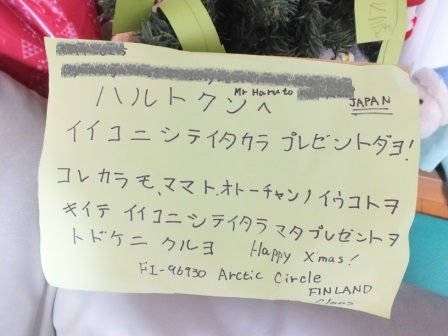 Mr Haruto
ハルトクンへ
JAPAN
イイコニシテイタカラ プレゼントダヨ!
コレカラモ、ママト、オトーチャンノイウコトヲ
キイテ イイコニシテイタラ マタプレゼントヲ
トドケニ クルヨ Happy Xmas!
FI-96930 Arctic Circle
FINLAND
Claus